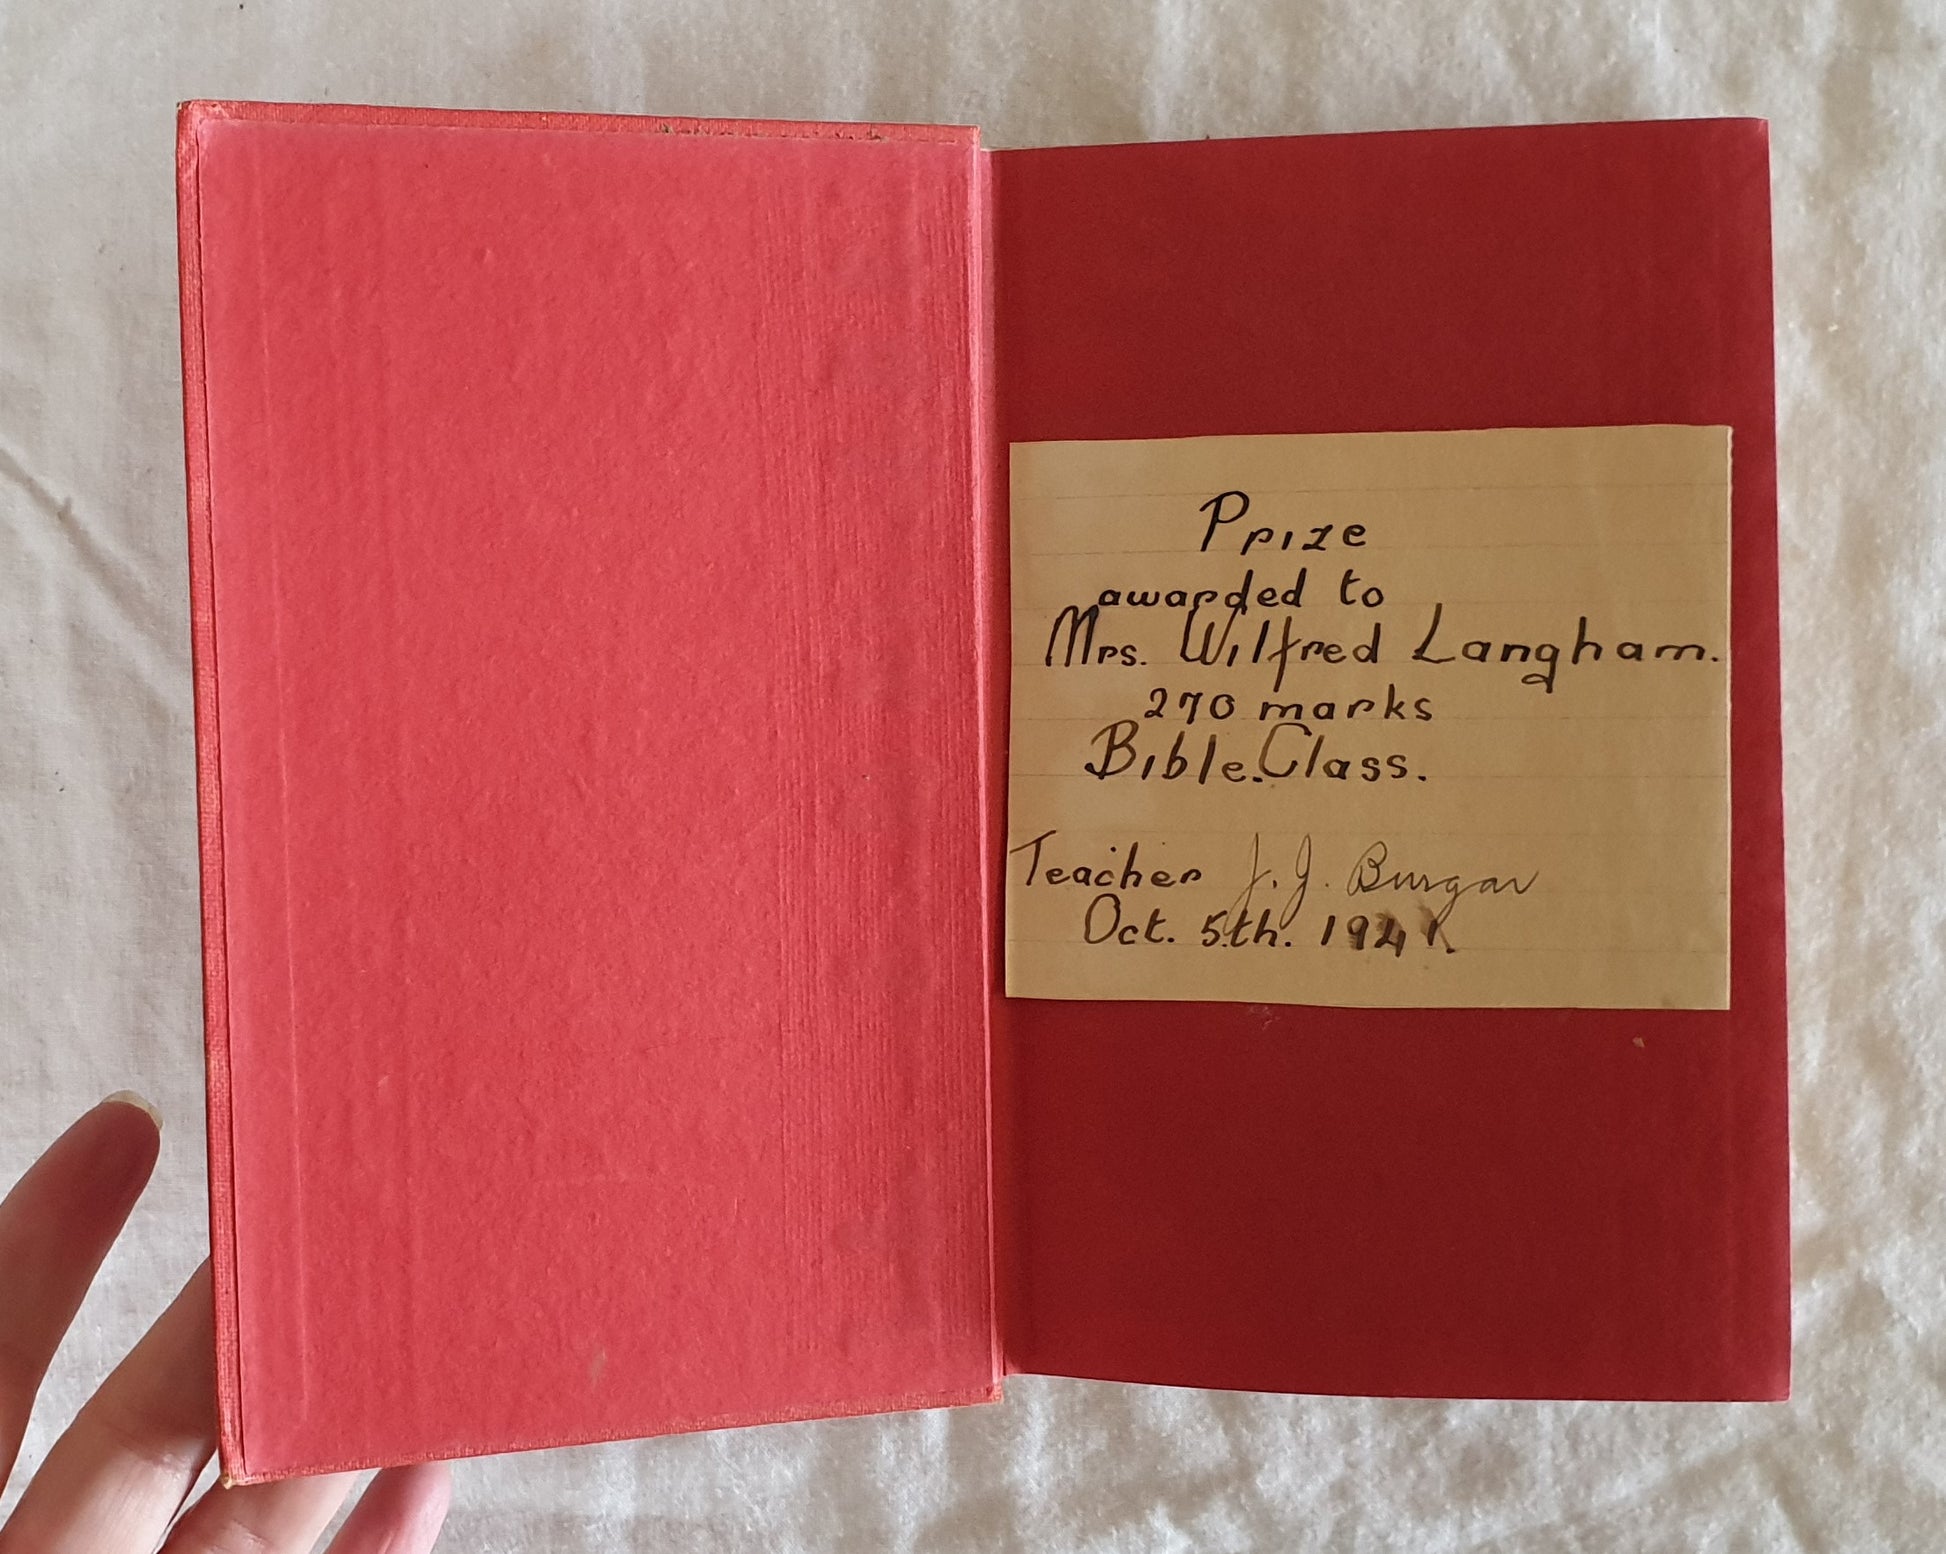 Prize
awarded to
Mrs. Wilfred Langham.
270 marks
Bible.Class.
Teacher J. J. Burgar
Oct. 5.th. 1941.